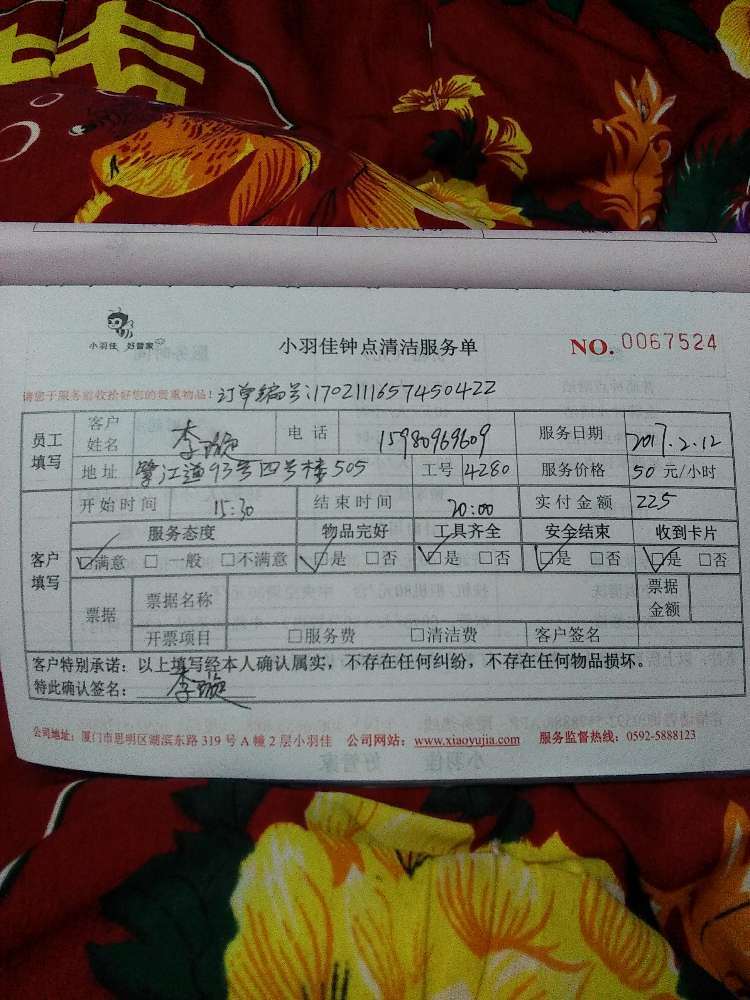 小羽佳 好管家
小羽佳钟点清洁服务单
NO. 0067524
请您于服务前收拾好您的贵重物品！订单编号：1702111657450422
员工填写 客户姓名 李璇 电话 15980969609 服务日期 2017.2.12
地址 鹭江道93号四号楼505 工号 4280 服务价格 50 元/小时
客户填写 开始时间 15:30 结束时间 20:00 实付金额 225
服务态度 物品完好 工具齐全 安全结束 收到卡片
☑满意 □ 一般 □不满意 ☑是 □否 ☑是 □否 ☑是 □否 ☑是 □否
票据 票据名称 票据金额
开票项目 □服务费 □清洁费 客户签名
客户特别承诺：以上填写经本人确认属实，不存在任何纠纷，不存在任何物品损坏.
特此确认签名： 李璇
公司地址：厦门市思明区湖滨东路 319 号 A 幢 2 层小羽佳 公司网站：www.xiaoyujia.com 服务监督热线：0592-5888123